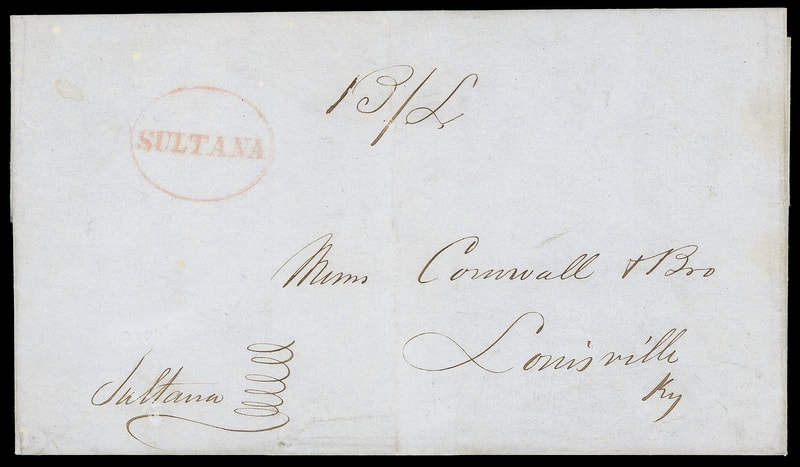 B/L
SULTANA
Messrs Cornwall & Bro
Louisville
Ky
Sultana